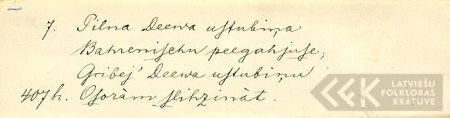 7. Pilna Deewa ustubiņa
Bahrenischu peegahjuse;
Gribej Deewa ustubiņu
407h. Osoràm slihzinàt.
LATVIEŠU
FOLKLORAS
KRĀTUVE